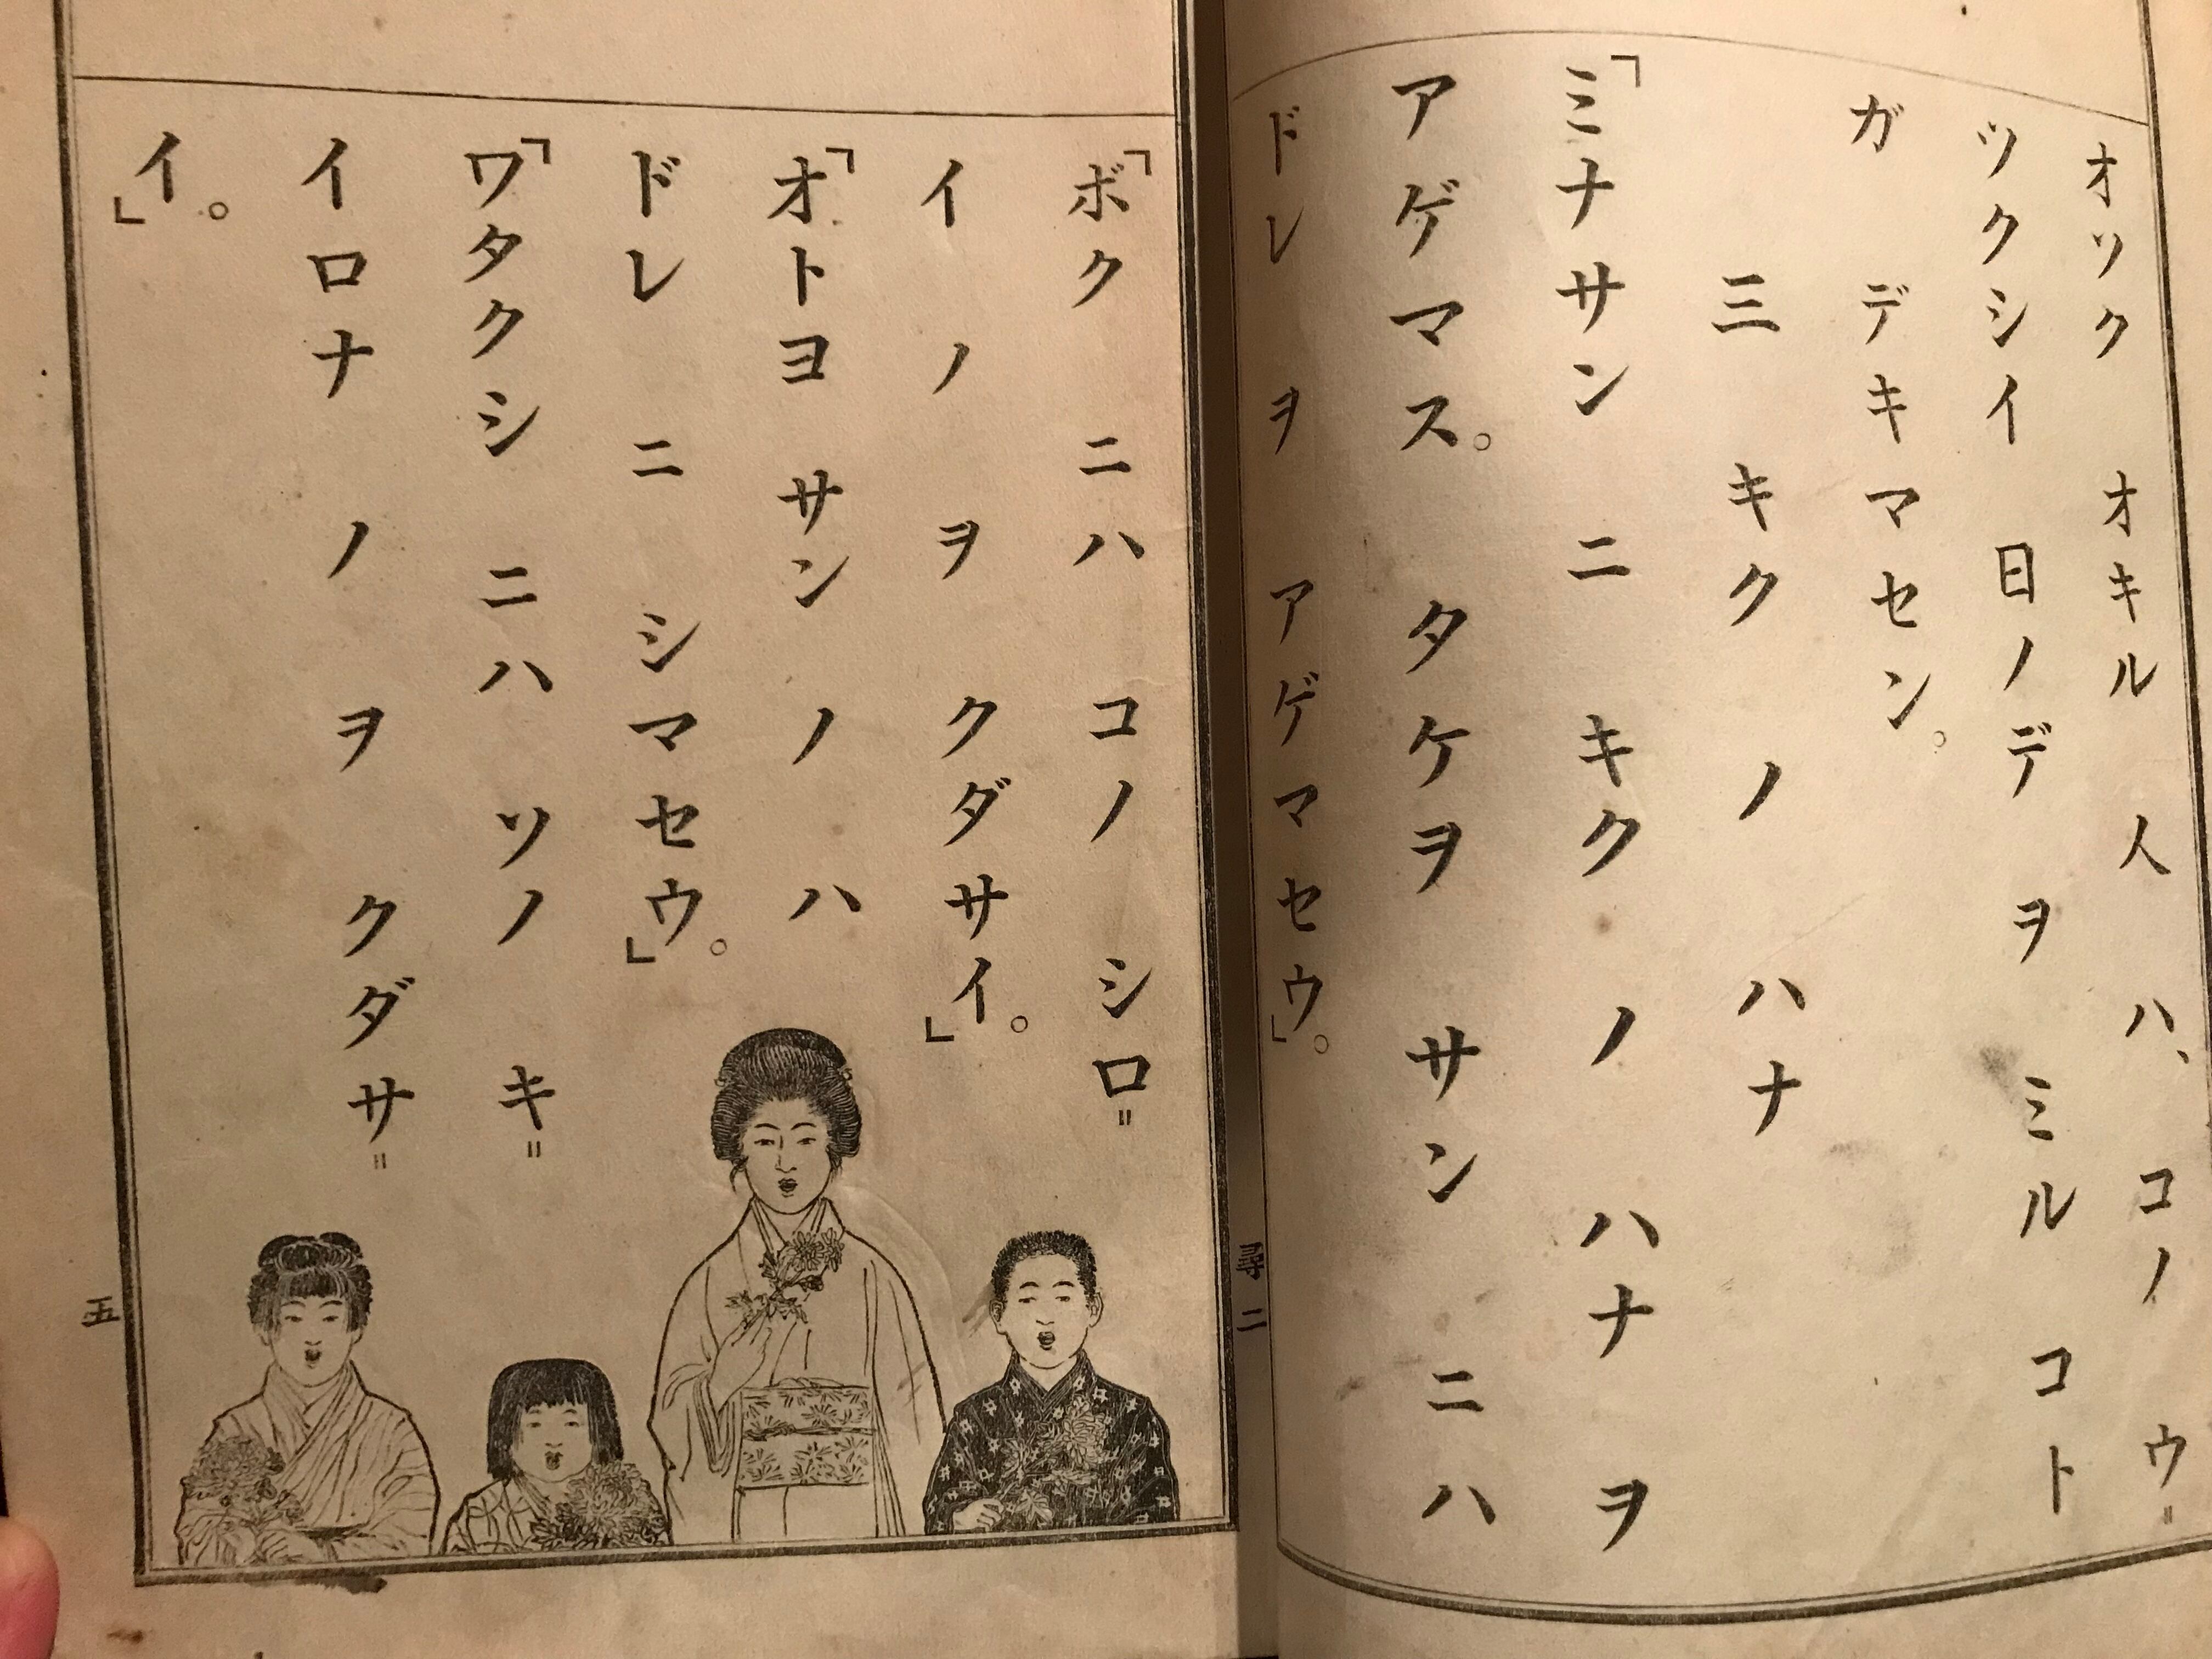 オソク オキル 人 ハ、コノ ウ゠
ツクシイ 日ノデ ヲ ミル コト
ガ デキマセン。
三 キク ノ ハナ
「ミナサン ニ キク ノ ハナ ヲ
アゲマス。 タケヲ サン ニハ
ドレ ヲ アゲマセウ。」
尋二
「ボク ニハ コノ シロ゠
イ ノ ヲ クダサイ。」
「オトヨ サン ノ ハ
ドレ ニ シマセウ。」
「ワタクシ ニハ ソノ キ゠
イロナ ノ ヲ クダサ゠
イ。」
五